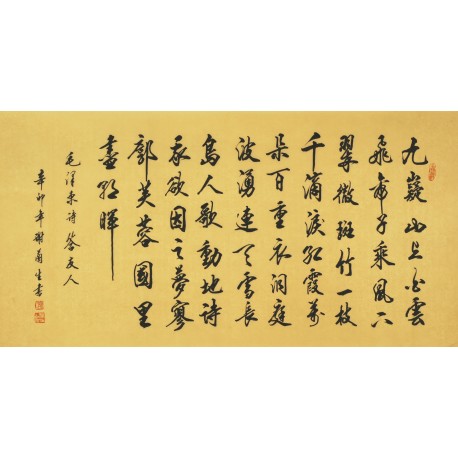 九嶷山上白雲
飛帝子乘風下
翠微斑竹一枝
千滴淚紅霞萬
朵百重衣洞庭
波湧連天雪長
島人歌動地詩
我欲因之夢寥
廓芙蓉國里
盡朝暉
毛澤東詩答友人
辛卯年生書